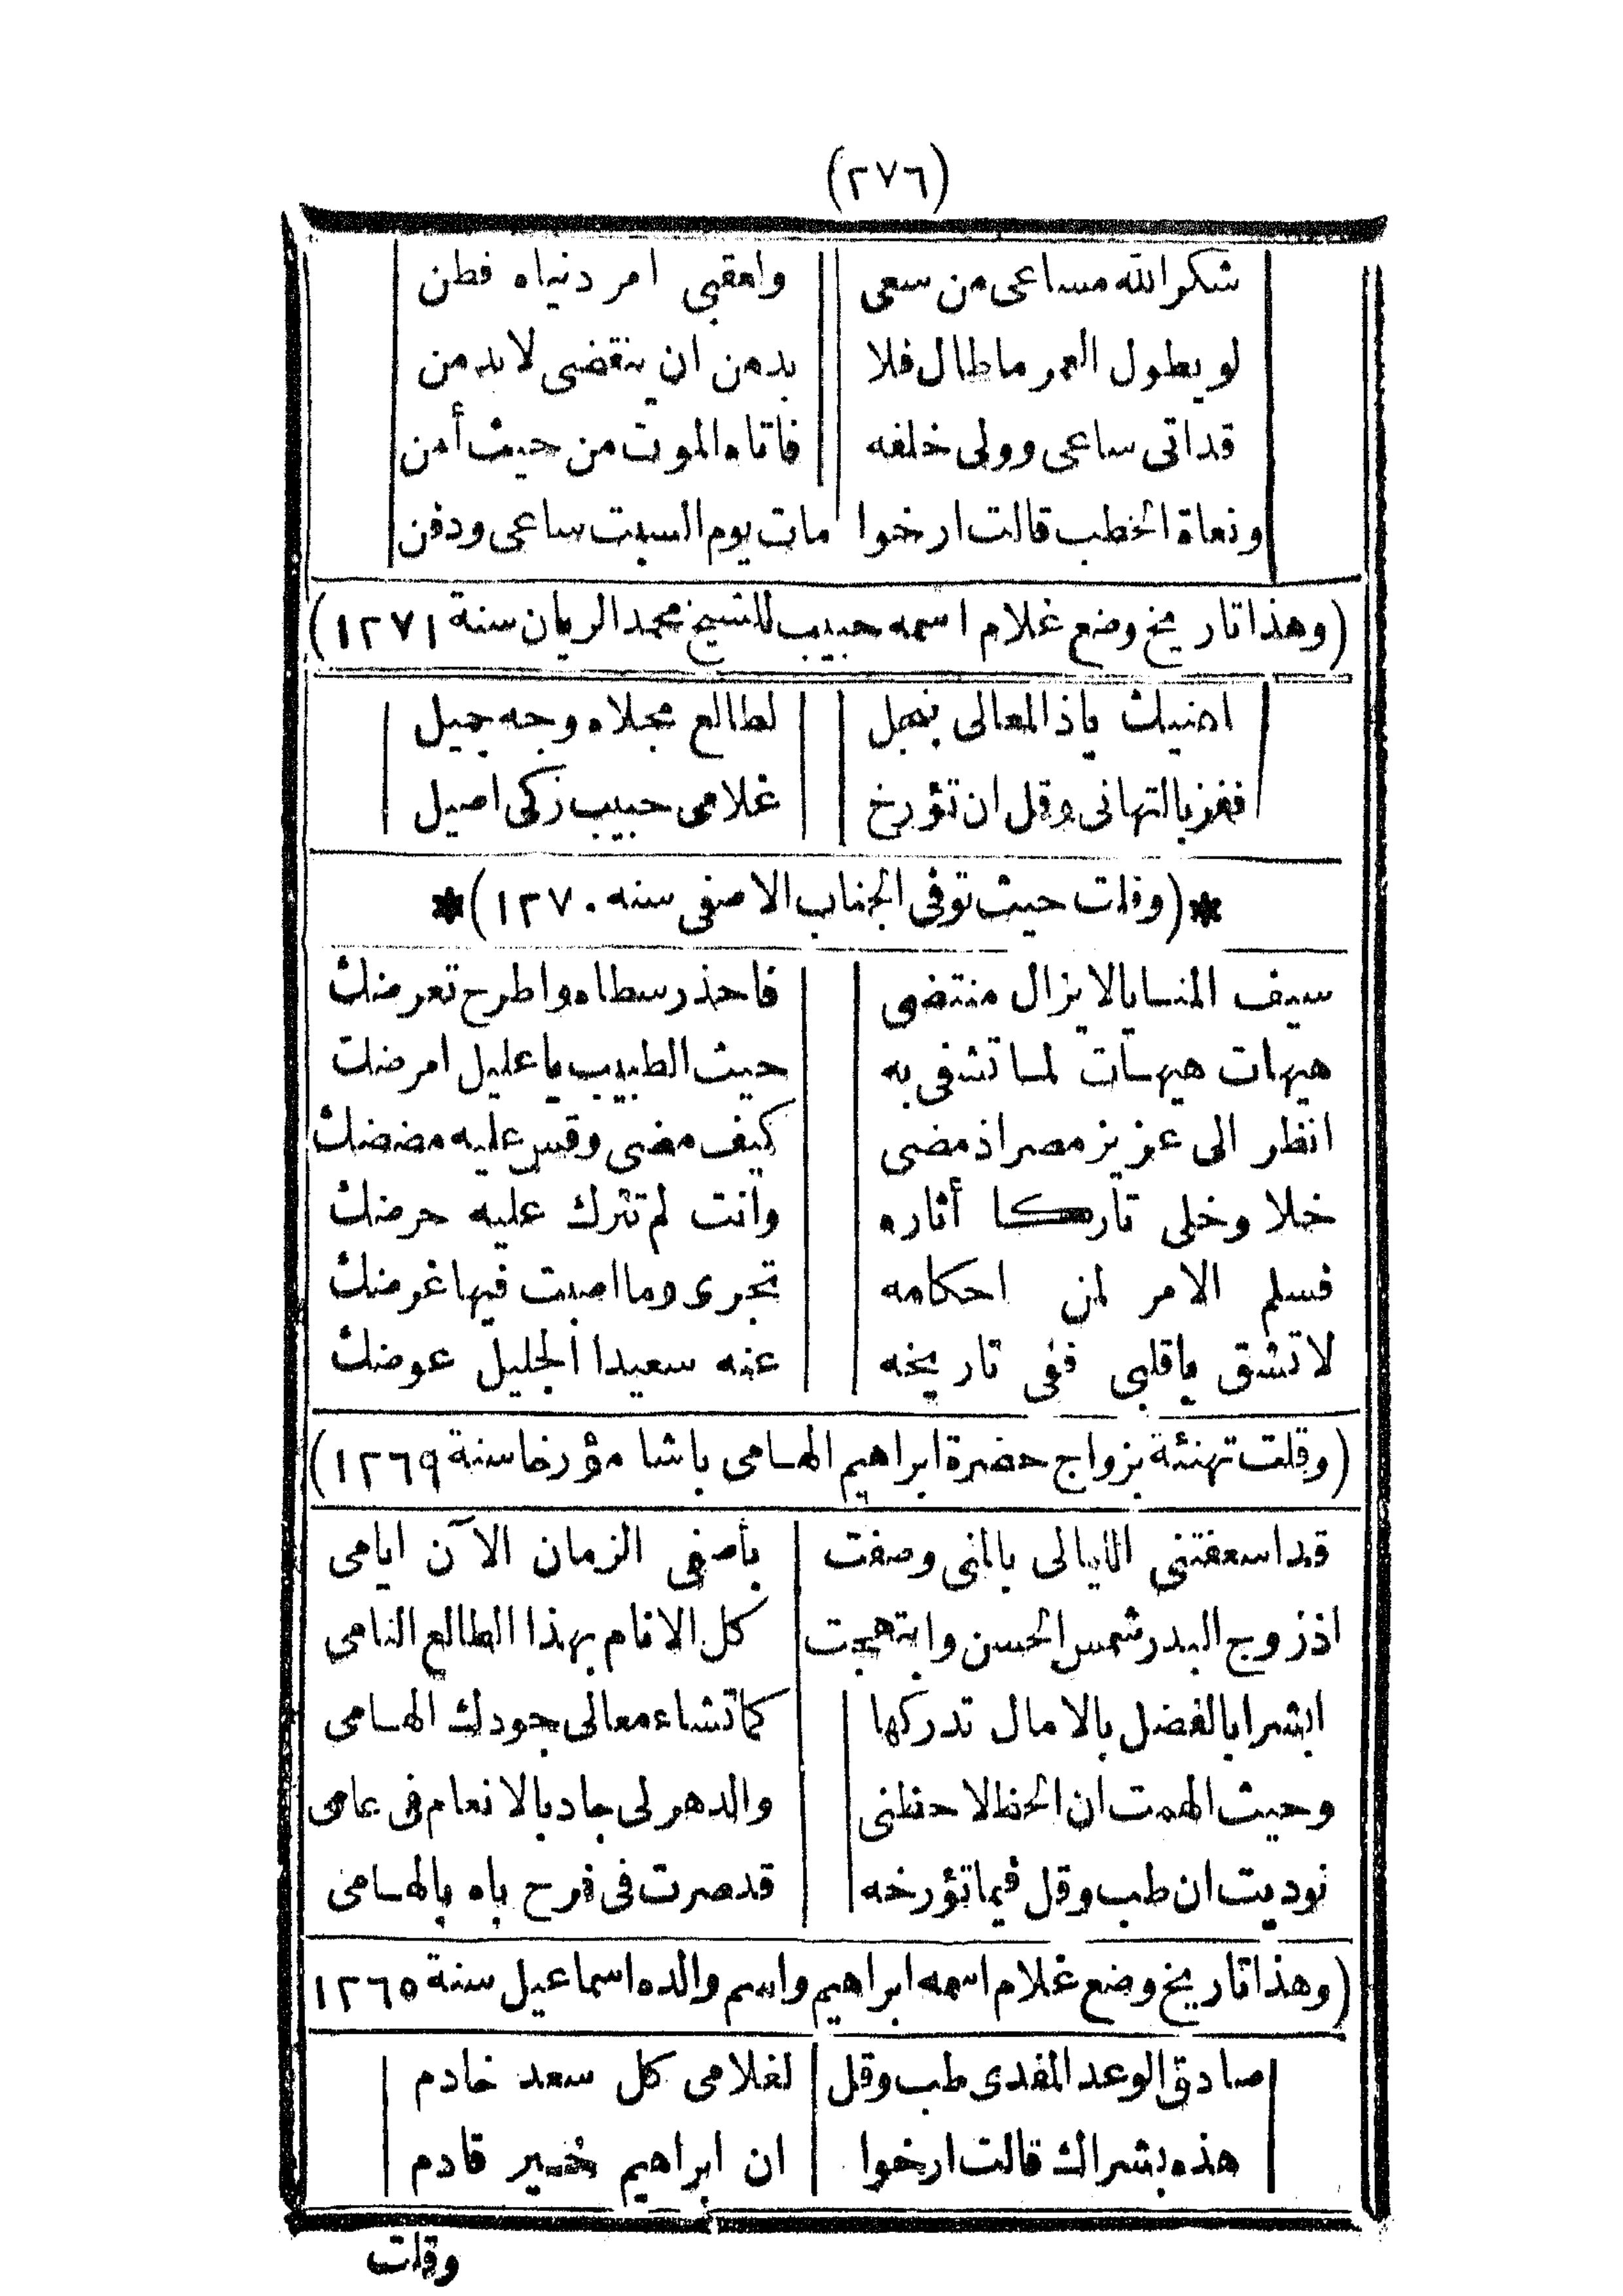 (٢٧٦)
شكر الله مساعى من سعى وامقبى امر دنياه فطن
لو يطول العمر ما طال فلا بد من ان ينقضى لا بد من
قد اتى ساعى وولى خلفه فاتاه الموت من حيث أمن
ونعاة الخطب قالت ارخوا مات يوم السبت ساعى ودفن
(وهذا تاريخ وضع غلام اسمه حبيب للشيخ محمد الريان سنة ١٢٧١)
اهنيك ياذ المعالى بنجل لطالع مجلاه وجه جميل
ففز بالتهانى وقل ان تؤرخ غلامى حبيب زكى اصيل
*(وقلت حيث توفى الجناب الاصفى سنه ١٢٧٠)*
سيف المنايا لا يزال منتضى فاحذر سطاه واطرح تعرضك
هيهات هيهات لما تشفى به حيث الطبيب يا عليل امرضك
انظر الى عزيز مصر اذ مضى كيف مضى وقس عليه مضضك
خلا وخلى تاركا أثاره وأنت لم تترك عليه حرضك
فسلم الامر لمن احكامه تجرى وما اصبت فيها غرضك
لا تشق يا قلبى ففى تاريخه عنه سعيدا الجليل عوضك
(وقلت تهنئة بزواج حضرة ابراهيم الهامى باشا مؤرخا سنة ١٢٦٩)
قد اسعفتنى الليالى بالمنى وصفت بأصفى الزمان الآن ايامى
اذ زوج البدر شمس الحسن وابتهجت كل الانام بهذا الطالع النامى
ابشر ابا الفضل بالامال تدركها كما تشاء معالى جودك الهامى
وحيث الهمت ان الحظ لاحظنى والدهر لى جاد بالانعام فى عامى
نوديت ان طب وقل فيما تؤرخه قد صرت فى فرح باه بالهامى
(وهذا تاريخ وضع غلام اسمه ابراهيم واسم والده اسماعيل سنة ١٢٦٥
صادق الوعد المفدى طب وقل لغلامى كل سعد خادم
هذه بشراك قالت ارخوا ان ابراهيم خير قادم
وقلت